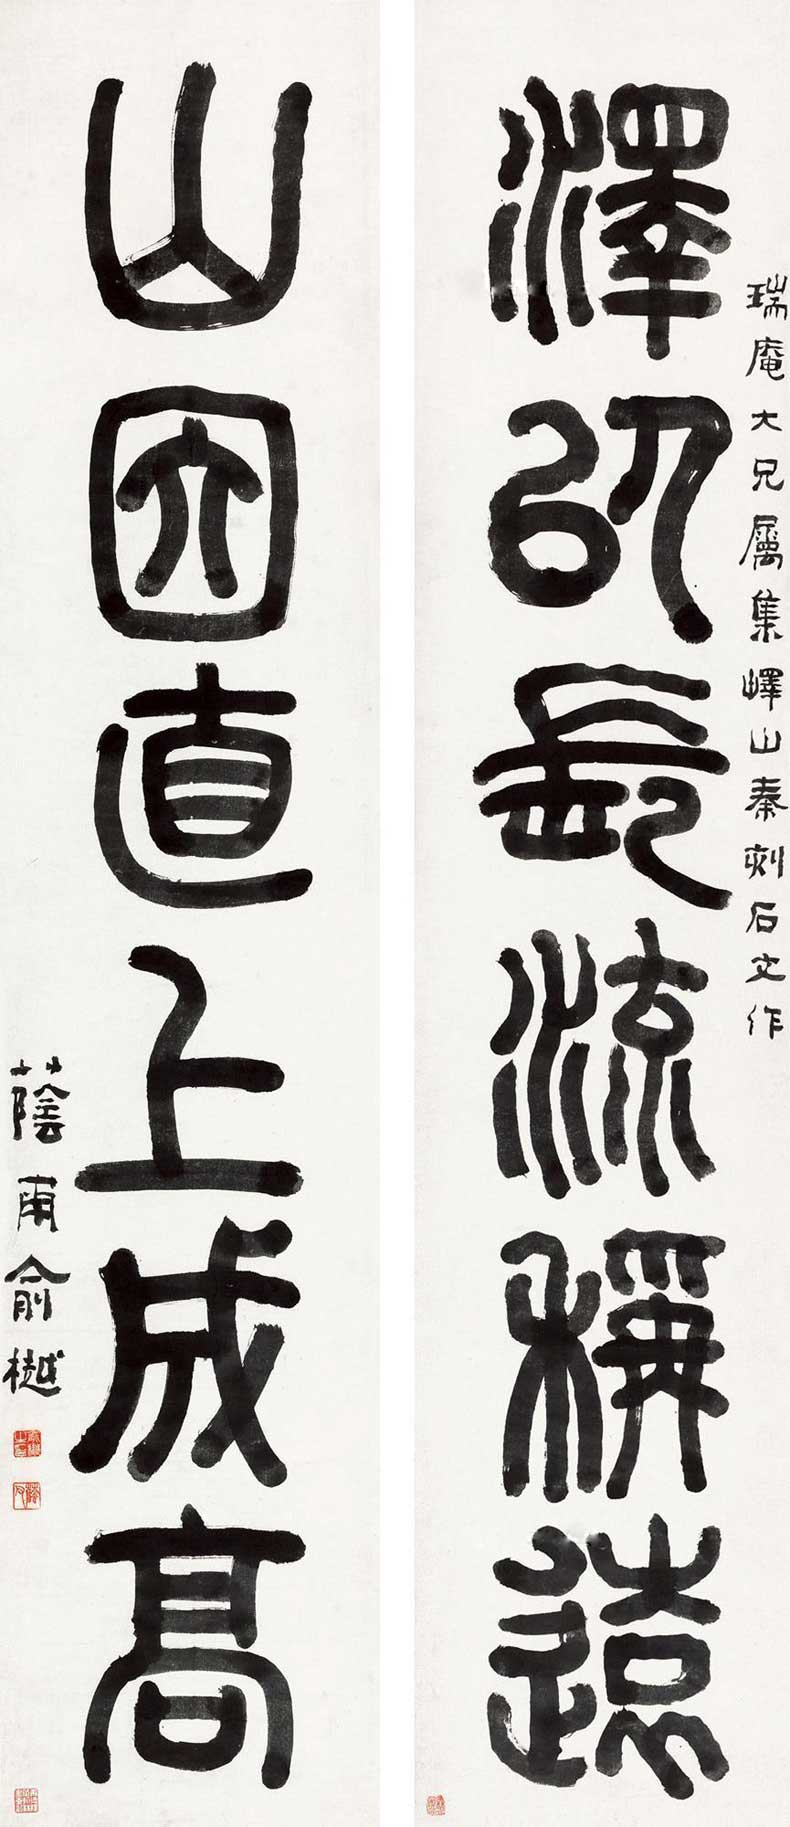 瑞庵大兄属集嶧山秦刻石文作
澤㠯長流稱遠
山因直上成高
蔭甫俞樾